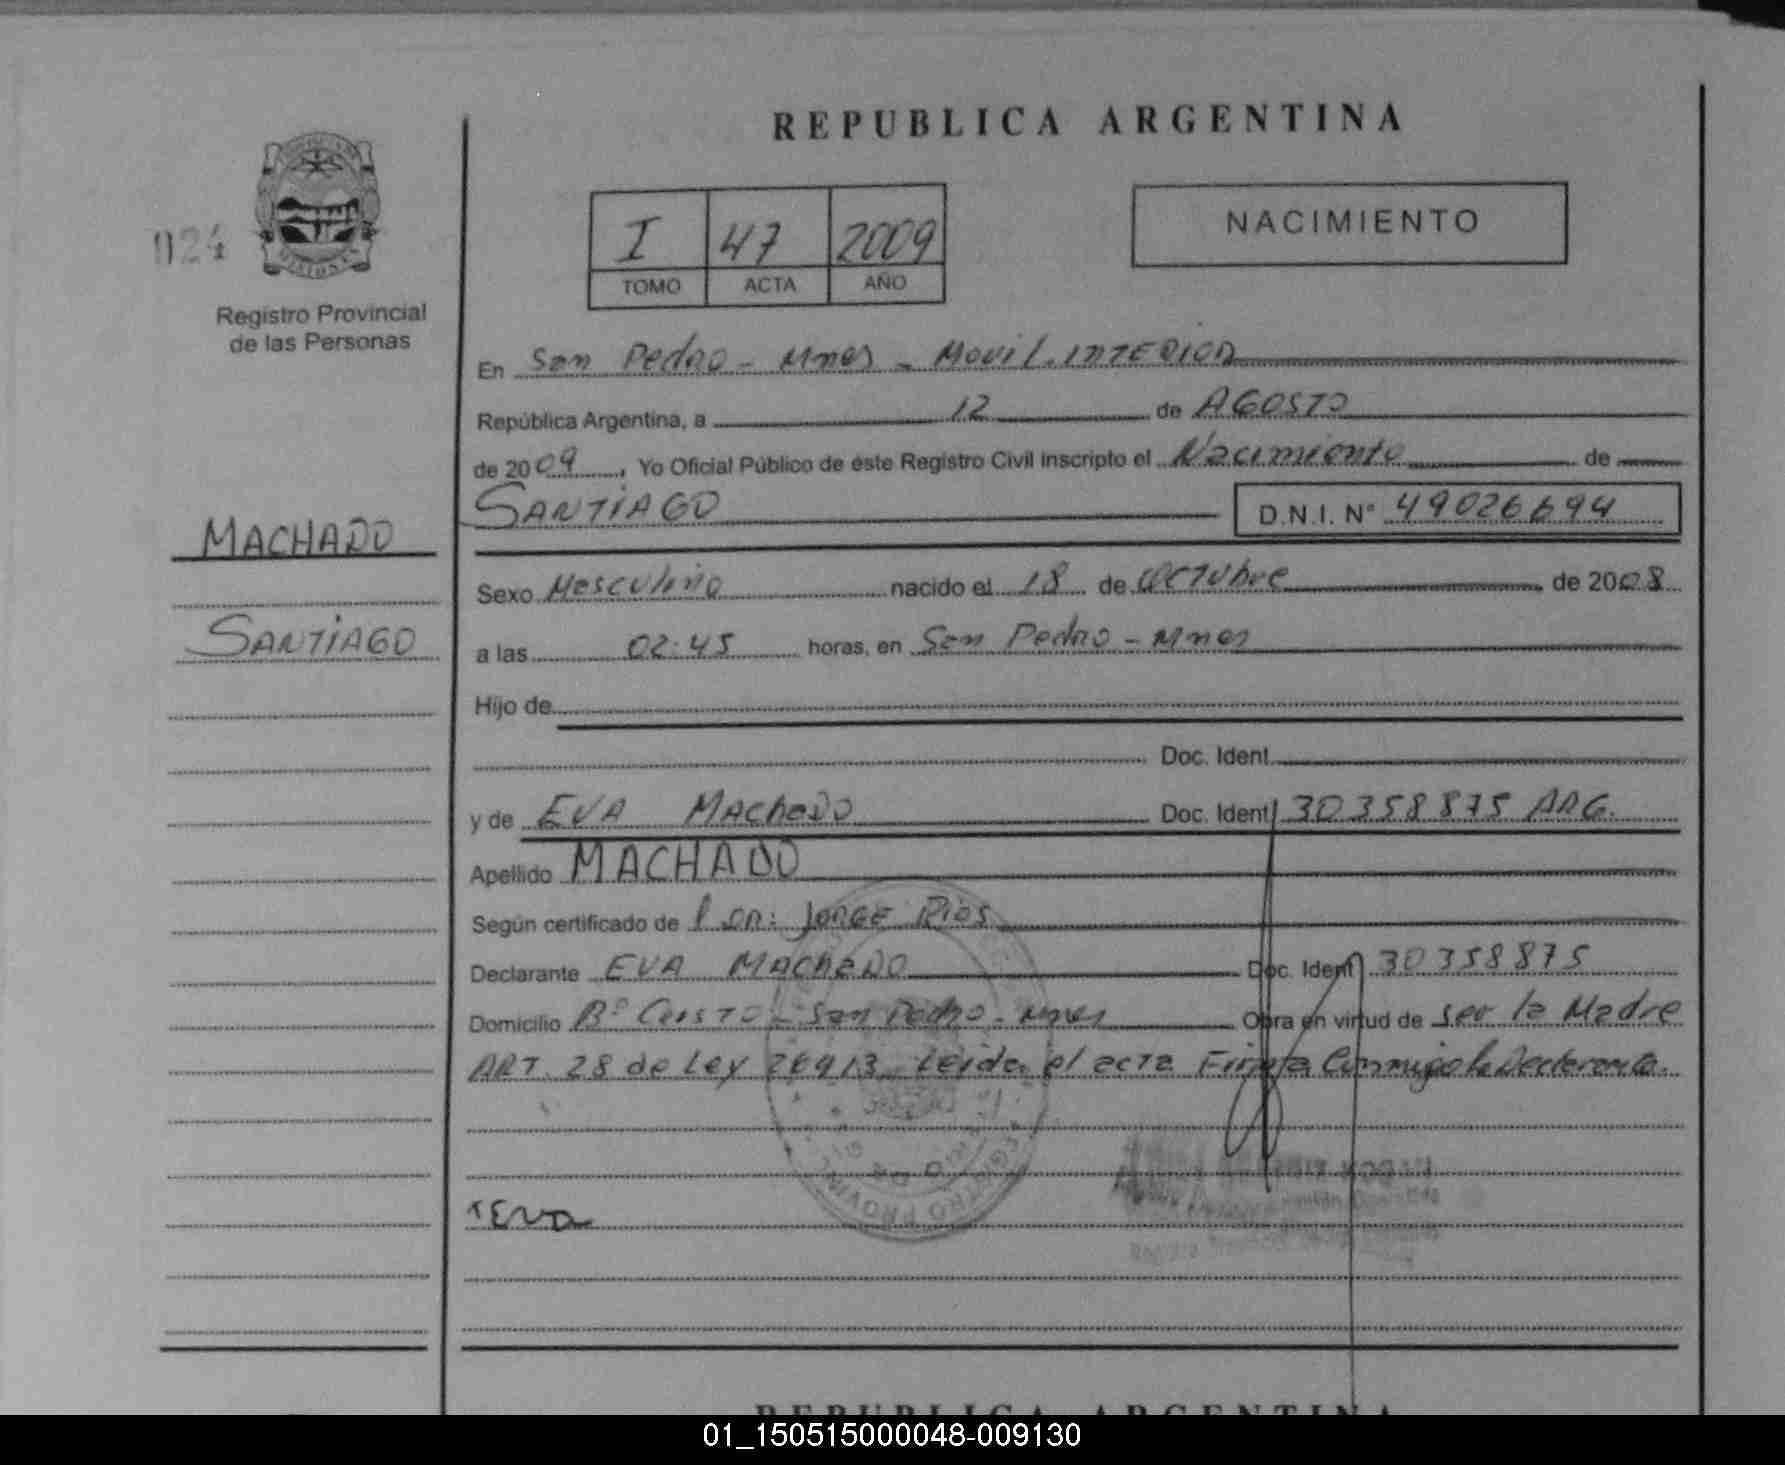 REPUBLICA ARGENTINA
I 47 2009
TOMO ACTA AÑO
NACIMIENTO
024
MISIONES
Registro Provincial
de las Personas
MACHADO
SANTIAGO
En San Pedro - Mnes - Movil. INTERIOR
República Argentina, a 12 de AGOSTO
de 2009, Yo Oficial Público de éste Registro Civil inscripto el Nacimiento de
SANTIAGO D.N.I. N° 49026694
Sexo Masculino nacido el 18 de Octubre de 2008
a las 02:45 horas, en San Pedro - Mnes
Hijo de
Doc. Ident.
y de EVA MAChaDO Doc. Ident. 30358875 ARG.
Apellido MACHADO
Según certificado de DR: JORGE RIOS
Declarante EVA MAChaDO Doc. Ident. 30358875
Domicilio B° CRISTO - San Pedro - Mnes Obra en virtud de ser la Madre
ART. 28 de Ley 26413 Leida el acta Firma Conmigo la Declarante.
EVA
REPUBLICA ARGENTINA
01_150515000048-009130